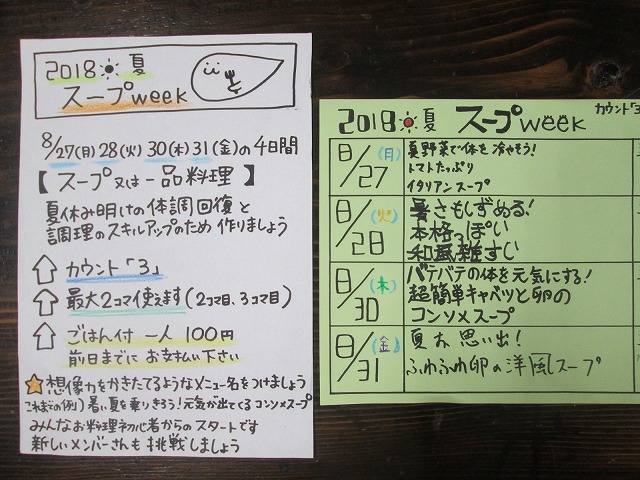 2018 夏
スープweek
8/27(月) 28(火) 30(木) 31(金)の4日間
【 スープ 又は 一品料理 】
夏休み明けの体調回復と
調理のスキルアップのため 作りましょう
カウント「3」
最大2コマ使えます(2コマ目、3コマ目)
ごはん付 一人 100円
前日までに お支払い下さい
想像力をかきたてるようなメニュー名をつけましょう
これまでの例) 暑い夏を乗りきろう!元気が出てくるコンソメスープ
みんなお料理初心者からのスタートです
新しいメンバーさんも 挑戦しましょう
2018 夏 スープweek
カウント「3
8/27 (月)
夏野菜で体を冷やそう!
トマトたっぷり
イタリアンスープ
8/28 (火)
暑さもしずめる!
本格っぽい
和風雑すじ
8/30 (木)
バテバテの体を元気にする!
超簡単キャベツと卵の
コンソメスープ
8/31 (金)
夏お思い出!
ふわふわ卵の洋風スープ